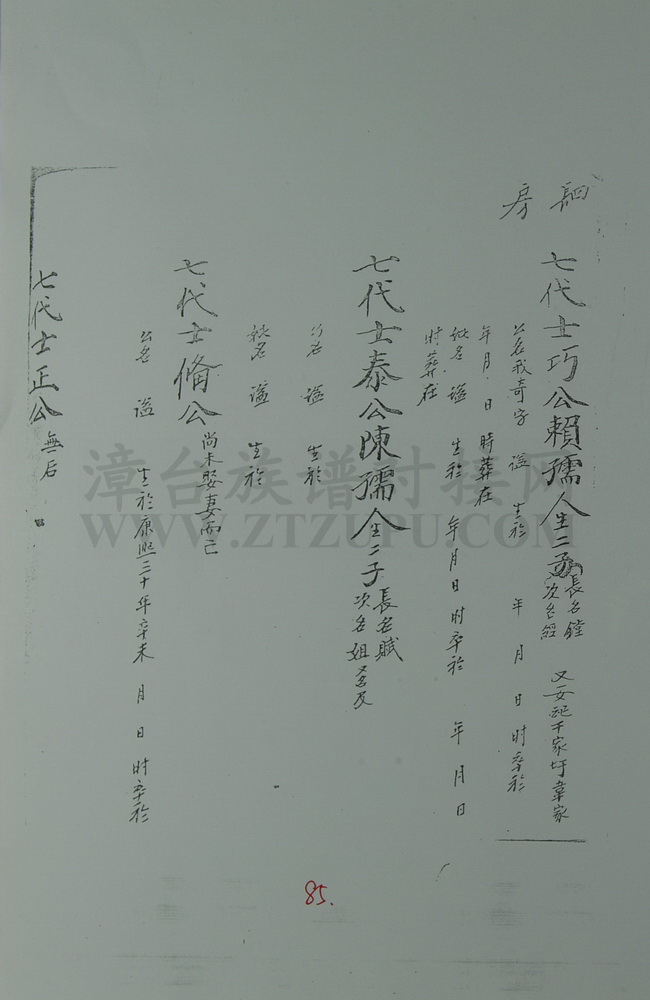 房
七代士巧公賴孺人生二子
長名鏜
次名經
又女配于家圩韋家
公名我奇字 諡 生於 年 月 日 时卒於
年 月 日 時葬在
妣名 諡 生於 年 月 日 时卒於 年 月 日
时葬在
七代士泰公陳孺人生二子
長名賦
次名姐
公名 諡 生於
妣名 諡 生於
七代士脩公
尚未娶妻而已
公名 諡 生於康熙三十年辛未 月 日 时卒於
七代士正公 無后
漳台族谱对接网
WWW.ZTZUPU.COM
85.